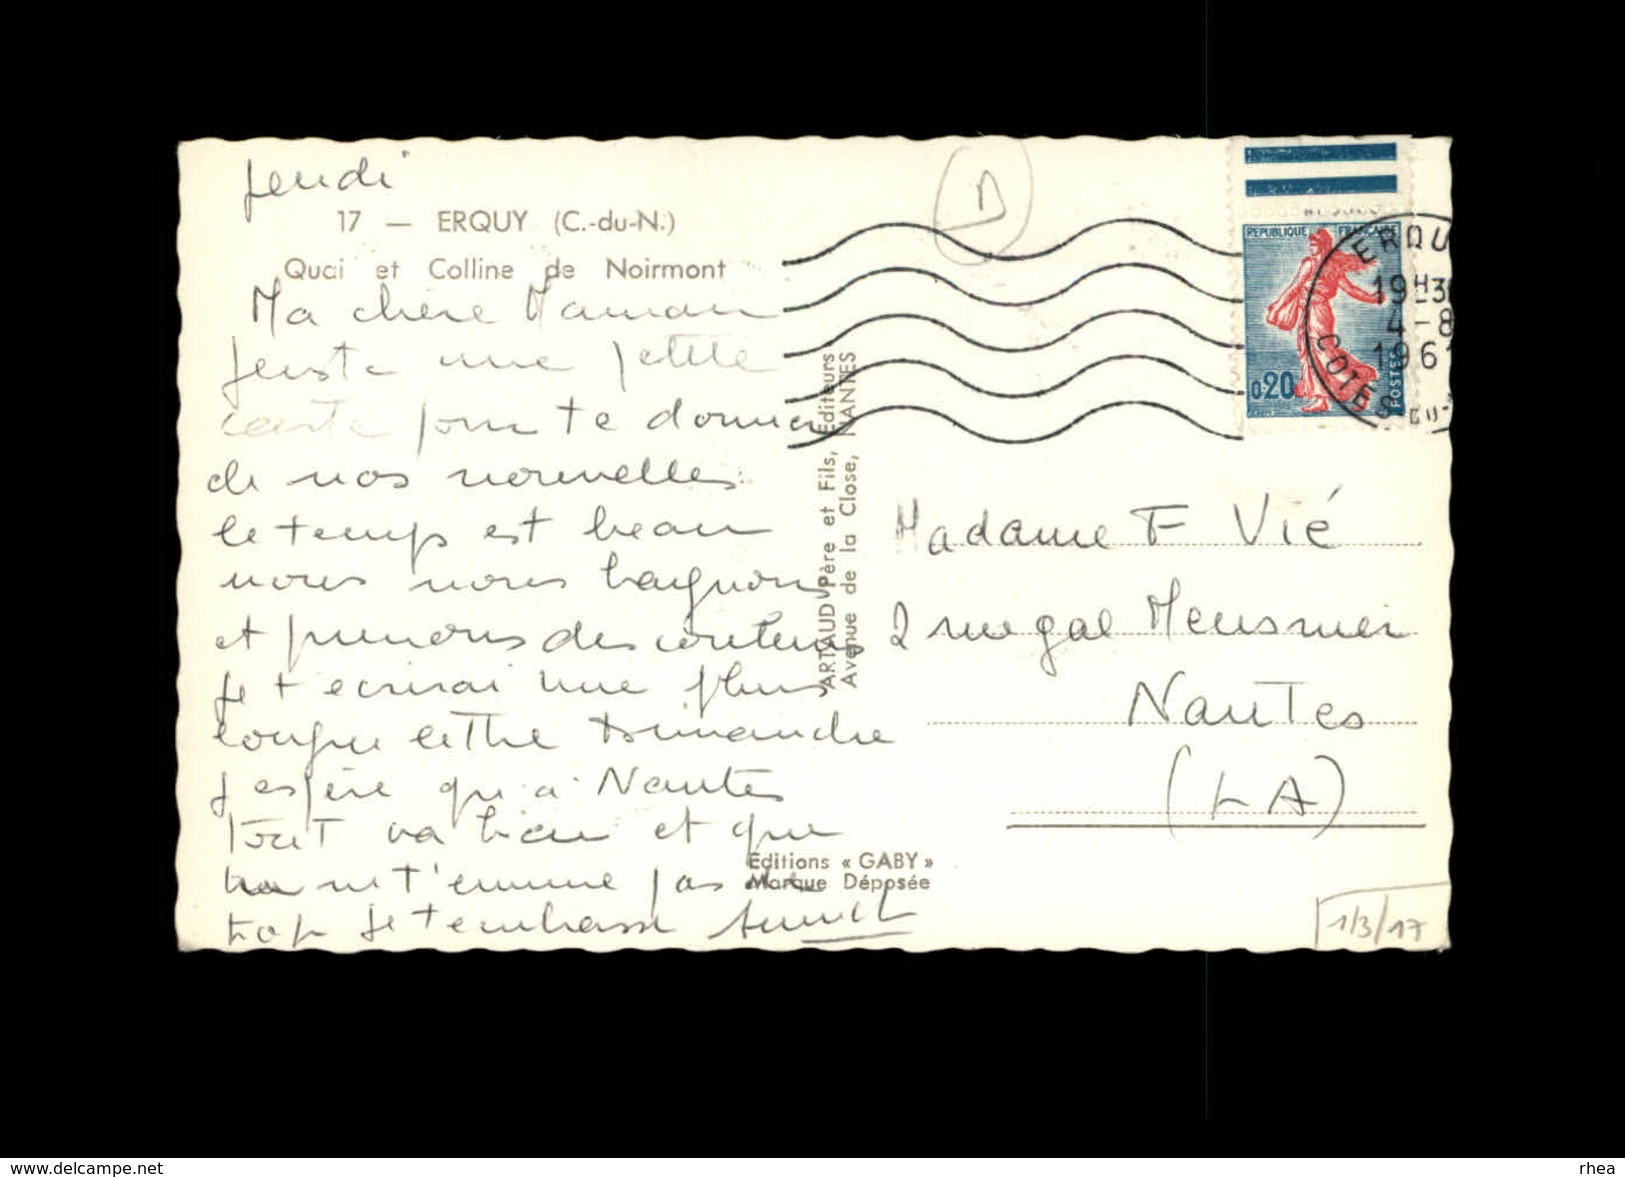 Jeudi
17 — ERQUY (C.-du-N.)
Quai et Colline de Noirmont
Ma chère Maman
Juste une petite
carte pour te donner
de nos nouvelles.
le temps est beau
nous nous baignons
et prenons des couleurs
Je t ecrirai une plus
longue lettre dimanche
J espère qu'à Nantes
Tout va bien et que
ne t'ennuie pas
trop Je t embrasse
ARTAUD Père et Fils, Editeurs
Avenue de la Close, NANTES
Editions « GABY »
Marque Déposée
REPUBLIQUE FRANÇAISE
0,20
POSTES
ERQU
19H3
4-8
1961
COTES-DU-
Madame F Vié
2 rue gal Meusnier
Nantes
(LA)
1/3/17
www.delcampe.net
rhea